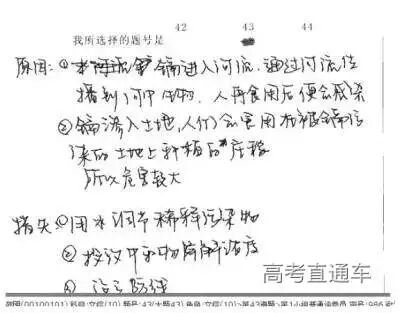 42 43 44
我所选择的题号是
原因：①镉进入河流，通过河流传
播到河中生物，人再食用后便会感染
②镉渗入土地，人们会食用在被镉污
染的土地上种植的庄稼
所以危害较大
措失：①用水调节稀释污染物
②投放中和物降解浓度
③
高考直通车